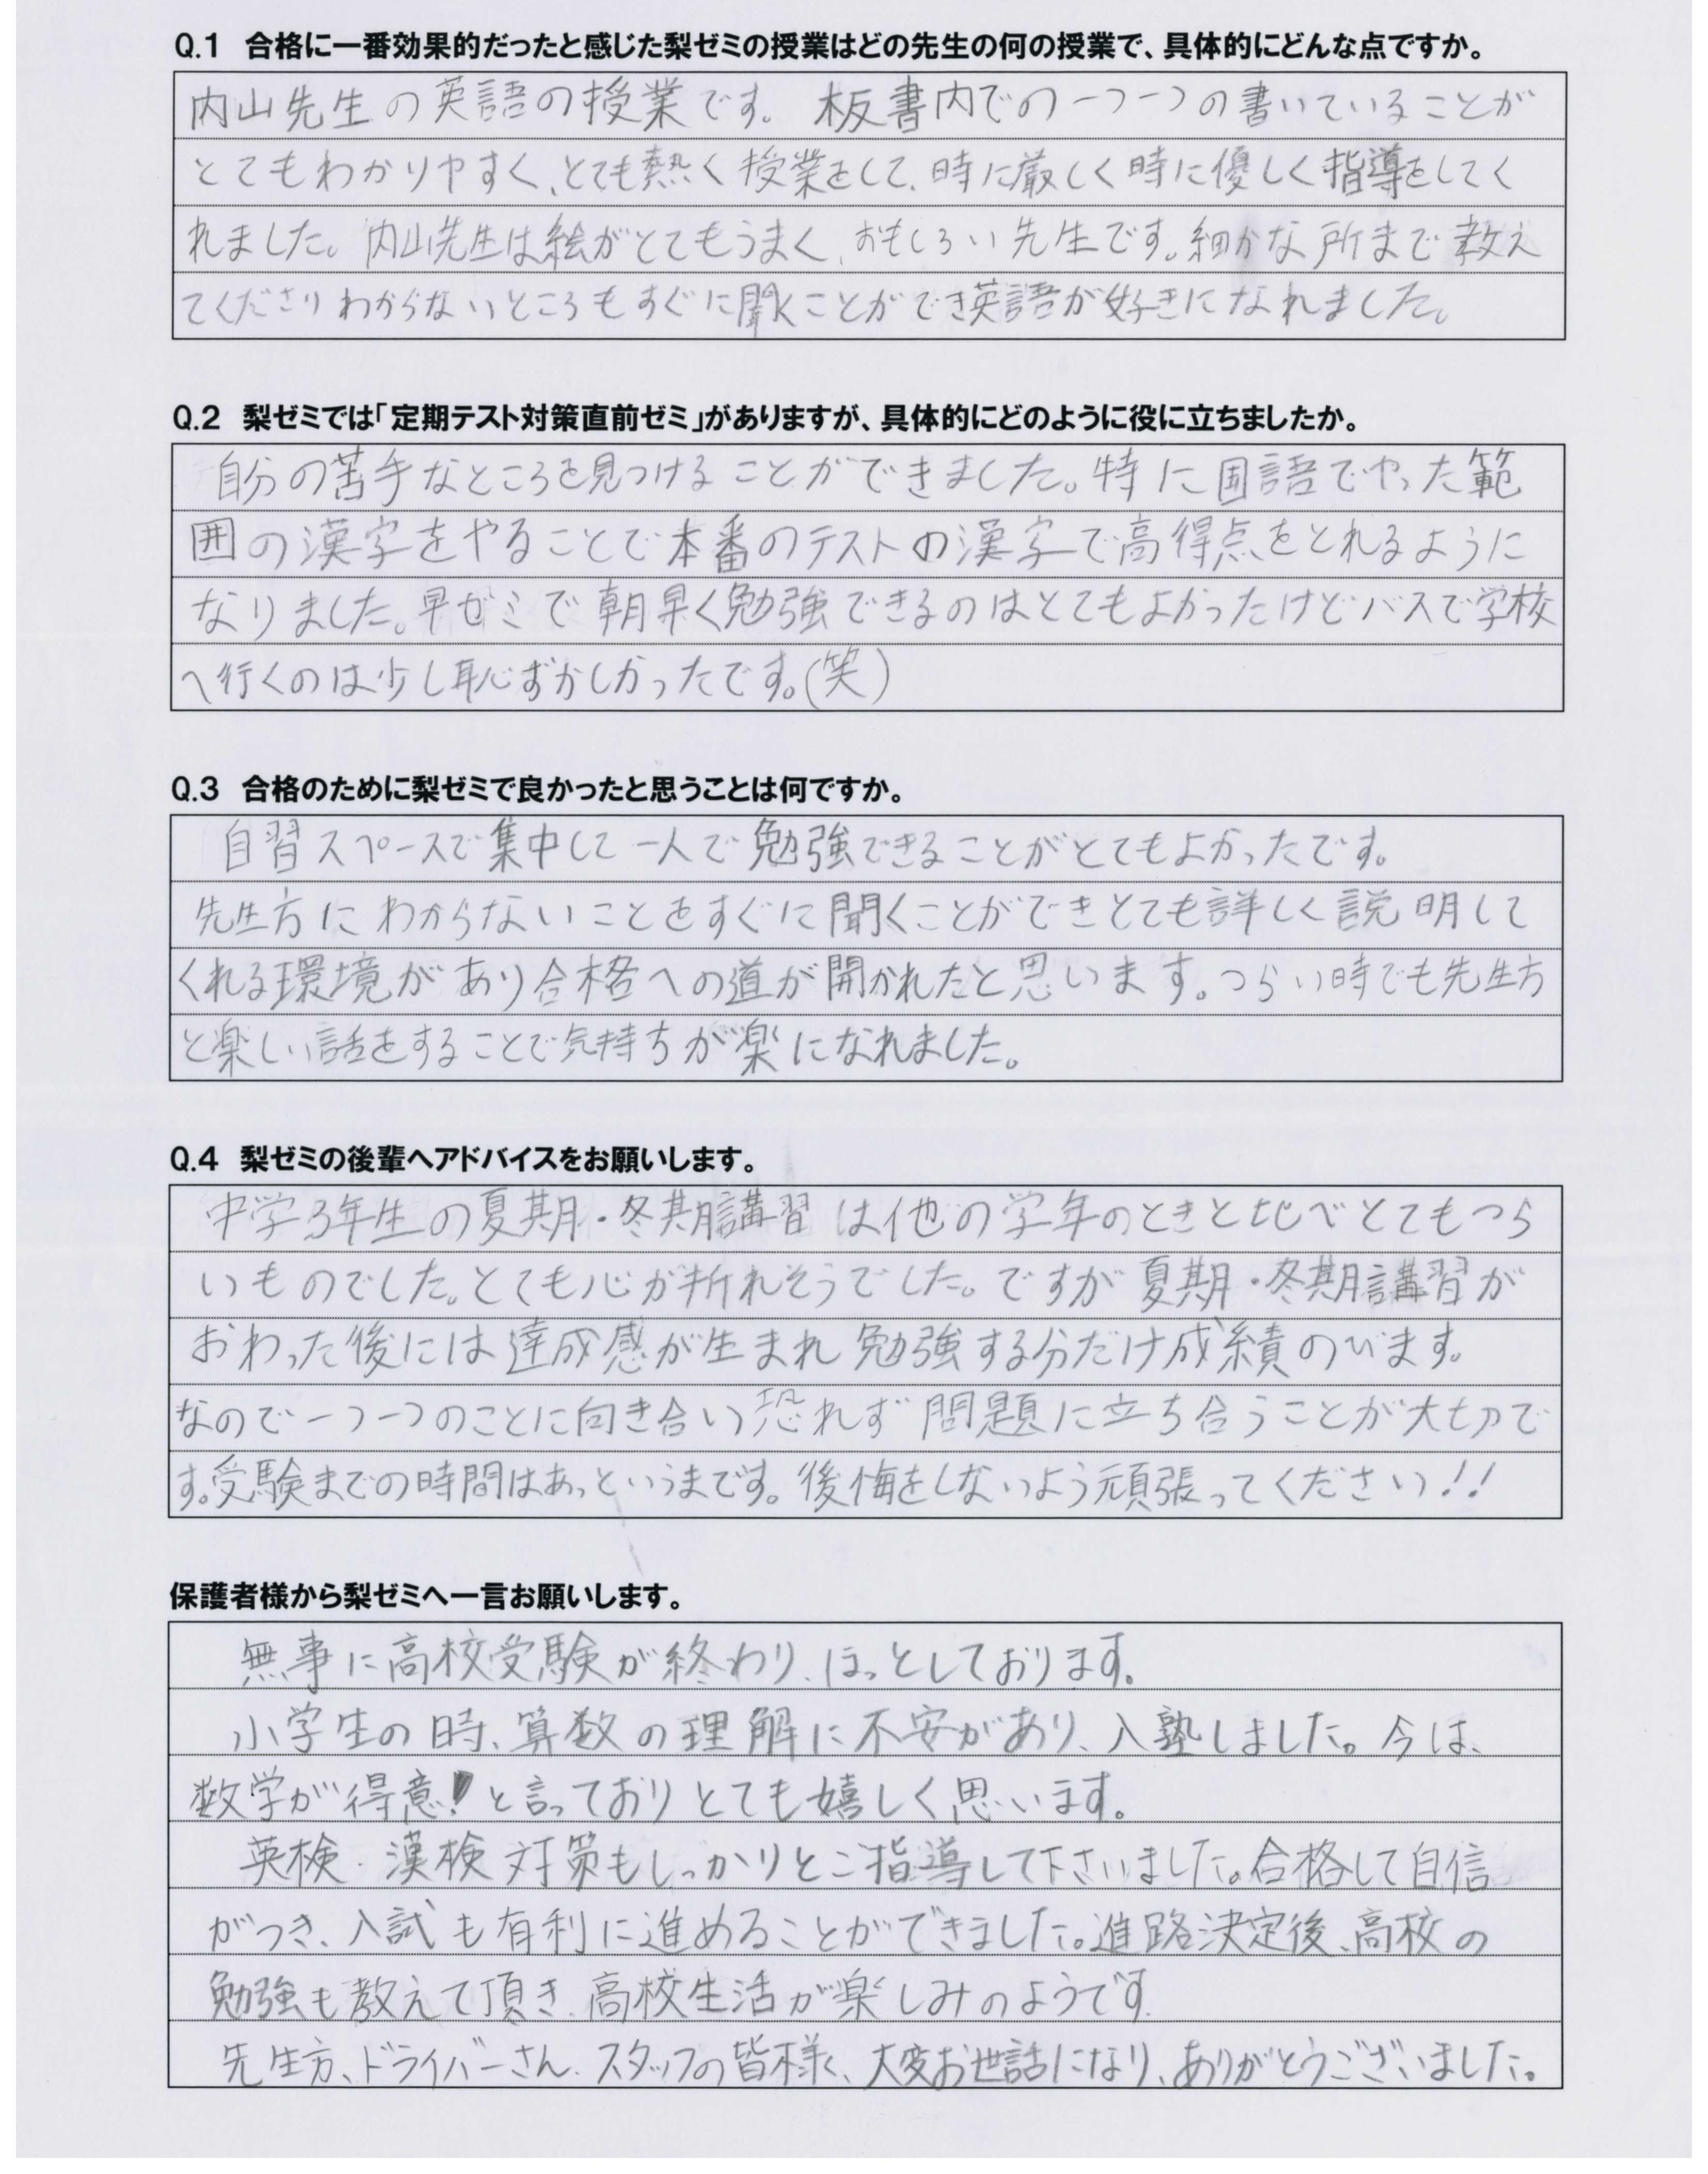 Q.1 合格に一番効果的だったと感じた梨ゼミの授業はどの先生の何の授業で、具体的にどんな点ですか。
内山先生の英語の授業です。板書内での一つ一つの書いていることが
とてもわかりやすく、とても熱く授業をして、時に厳しく時に優しく指導をしてく
れました。内山先生は絵がとてもうまく、おもしろい先生です。細かな所まで教え
てくださりわからないところもすぐに聞くことができ英語が好きになれました。
Q.2 梨ゼミでは「定期テスト対策直前ゼミ」がありますが、具体的にどのように役に立ちましたか。
自分の苦手なところを見つけることができました。特に国語でやった範
囲の漢字をやることで本番のテストの漢字で高得点をとれるように
なりました。早ゼミで朝早く勉強できるのはとてもよかったけどバスで学校
へ行くのは少し恥ずかしかったです。(笑)
Q.3 合格のために梨ゼミで良かったと思うことは何ですか。
自習スペースで集中して一人で勉強できることがとてもよかったです。
先生方にわからないことをすぐに聞くことができとても詳しく説明して
くれる環境があり合格への道が開かれたと思います。つらい時でも先生方
と楽しい話をすることで気持ちが楽になれました。
Q.4 梨ゼミの後輩へアドバイスをお願いします。
中学3年生の夏期・冬期講習は他の学年のときと比べとてもつら
いものでした。とても心が折れそうでした。ですが夏期・冬期講習が
おわった後には達成感が生まれ勉強する分だけ成績のびます。
なので一つ一つのことに向き合い恐れず問題に立ち合うことが大切で
す。受験までの時間はあっというまです。後悔をしないよう頑張ってください!!
保護者様から梨ゼミへ一言お願いします。
無事に高校受験が終わり、ほっとしております。
小学生の時、算数の理解に不安があり、入塾しました。今は、
数学が得意!と言っておりとても嬉しく思います。
英検・漢検対策もしっかりとご指導して下さいました。合格して自信
がつき、入試も有利に進めることができました。進路決定後、高校の
勉強も教えて頂き、高校生活が楽しみのようです.
先生方、ドライバーさん、スタッフの皆様、大変お世話になり、ありがとうございました。